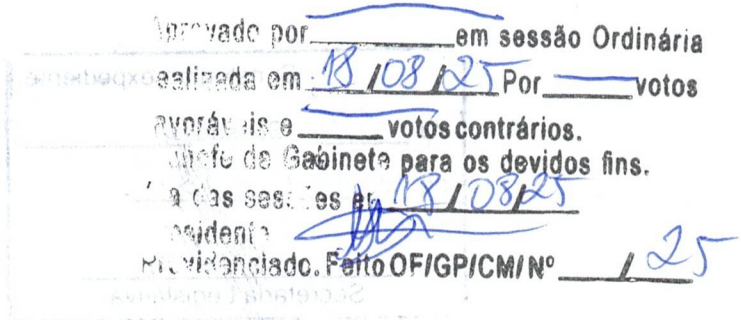 Aprovado por ________ em sessão Ordinária
realizada em 18/08/25 Por ____ votos
favoráveis e ____ votos contrários.
chefe de Gabinete para os devidos fins.
a das sessões em 18/08/25
Presidente
Providenciado. Feito OF/GP/CM/Nº ____/25
Secretaria Legislativa